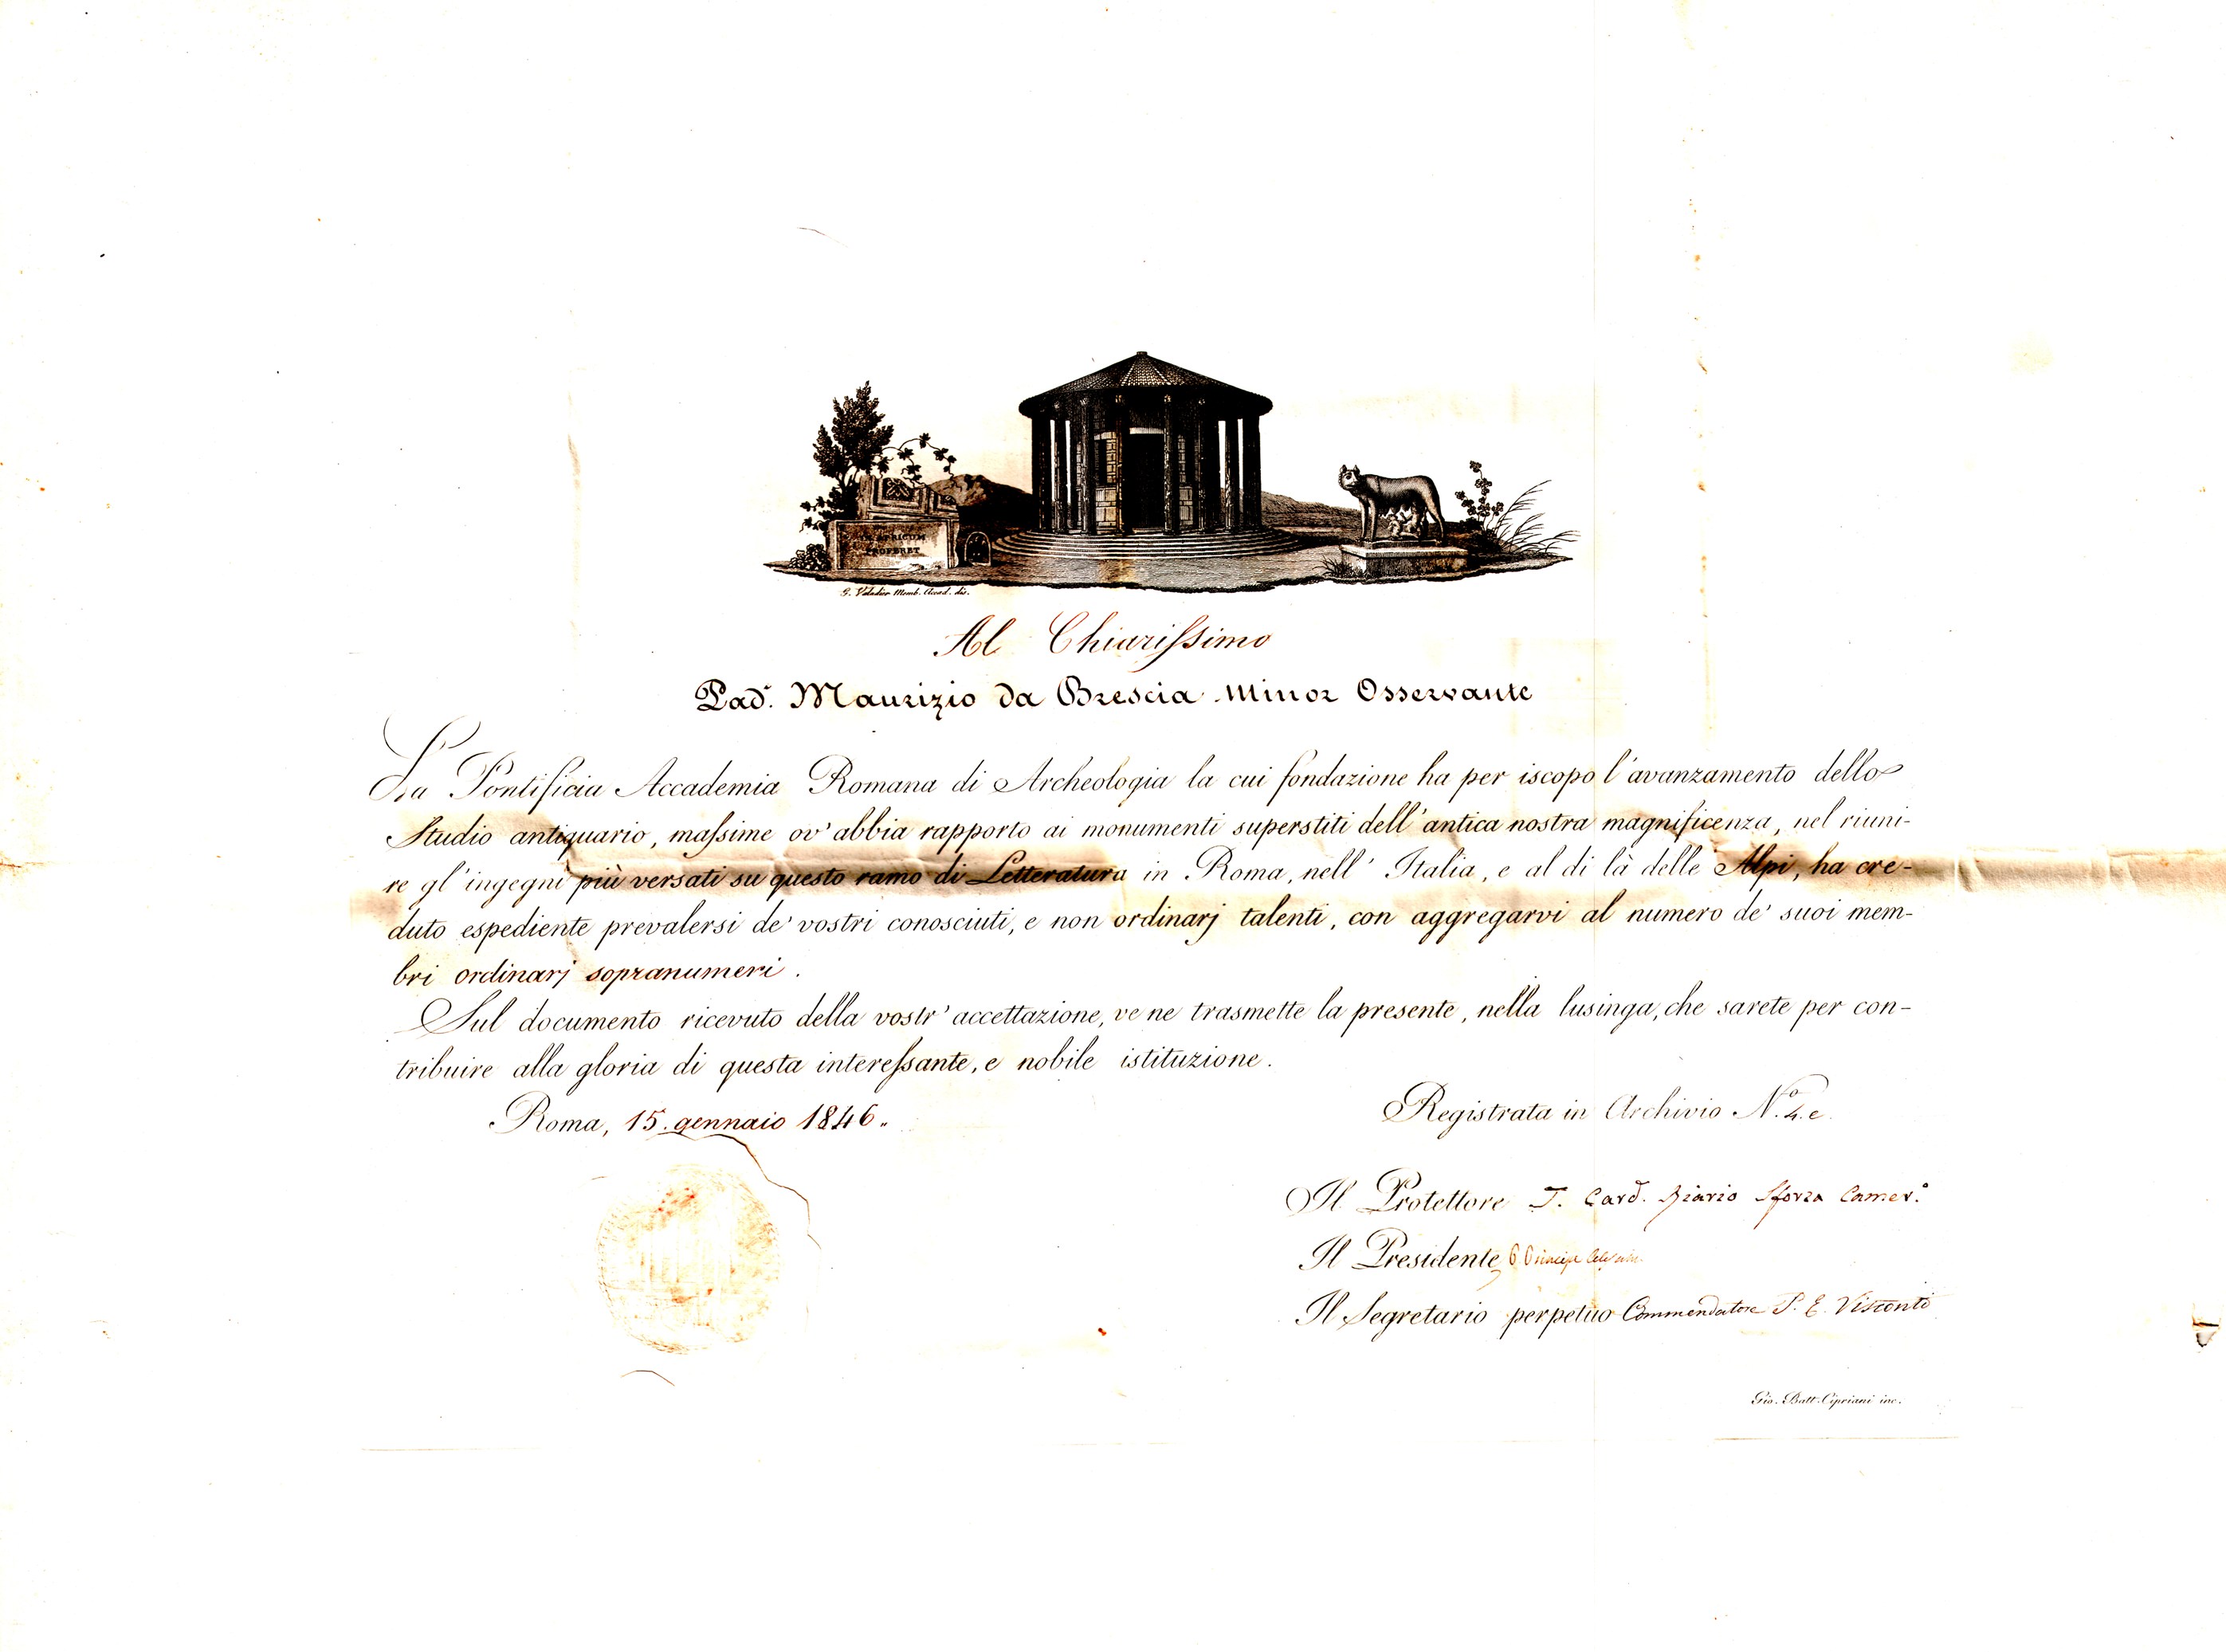 IN APRICUM
PROFERET
G. Valadier Memb. Accad. dis.
Al Chiarissimo
Pad.ͬ Maurizio da Brescia Minor Osservante
La Pontificia Accademia Romana di Archeologia la cui fondazione ha per iscopo l'avanzamento dello
Studio antiquario, massime ov' abbia rapporto ai monumenti superstiti dell' antica nostra magnificenza, nel riuni-
re gl' ingegni più versati su questo ramo di Letteratura in Roma, nell' Italia, e al di là delle Alpi, ha cre-
duto espediente prevalersi de' vostri conosciuti, e non ordinarj talenti, con aggregarvi al numero de' suoi mem-
bri ordinarj sopranumeri.
Sul documento ricevuto della vostr' accettazione, ve ne trasmette la presente, nella lusinga, che sarete per con-
tribuire alla gloria di questa interessante, e nobile istituzione.
Roma, 15. gennaio 1846.
Registrata in Archivio N.º 4. e.
Il Protettore T. Card. Riario Sforza Camer.º
Il Presidente Principe
Il Segretario perpetuo Commendatore P. E. Visconti
Gio. Batt. Cipriani inc.